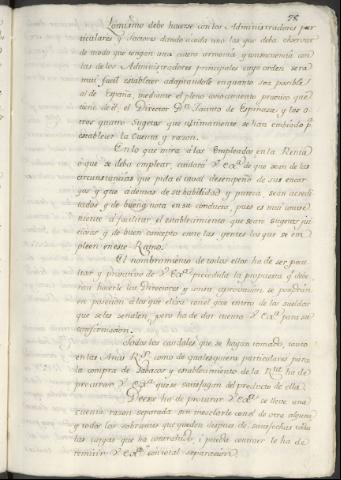 78
Lo mismo debe hacerse con los Administradores par
ticulares y Factores dando à cada uno las que deba observar
de modo que tengan una entera armonia y consecuencia con
las de los Administradores principales cuyo orden será
mui facil establecer adaptandole en quanto sea posible
al de España, mediante el pleno conocimiento practico que
tiene de el, el Director Dn. Jacinto de Espinosa y los o
tros quatro Sugetos que ultimamente se han embiado pa.
establecer la Cuenta y razon.
En lo que mira à los Empleados en la Renta
ò que se deba emplear, cuidará V. Exa. de que sean de las
circunstancias que pida el cabal desempeño de sus encar
gos y que ademas de su habilidad y pureza, sean acredi
tados, y de buena nota en su conducta, pues es mui conve
niente à facilitar el establecimiento que sean sugetos jui
ciosos y de buen concepto entre las gentes los que se em
pleen en este Ramo.
El nombramiento de todos ellos ha de ser pri
vativo y provativo de V. Exa. precedida la propuesta q. debe
ran hacerle los Directores y con su aprovacion se pondrán
en posesion à los que elixa con el que entren de los sueldos
que se les señalen, pero ha de dar cuenta V. Exa. para su
confirmacion.
Todos los caudales que se hayan tomado, tanto
en las Arcas Rs. como de qualesquiera particulares para
la compra de Tabacos y establecimiento de la Rta. ha de
procurar V. Exa. que se satisfagan del producto de ella.
Desde luego ha de procurar V. Exa. se lleve una
cuenta y razon separada sin mezclarla con el de otra alguna
y todos los sobrantes que queden despues de satisfechas todas
las cargas que ha contrahido, i pueda contraer le ha de
remitir V. Exa. con total separacion.